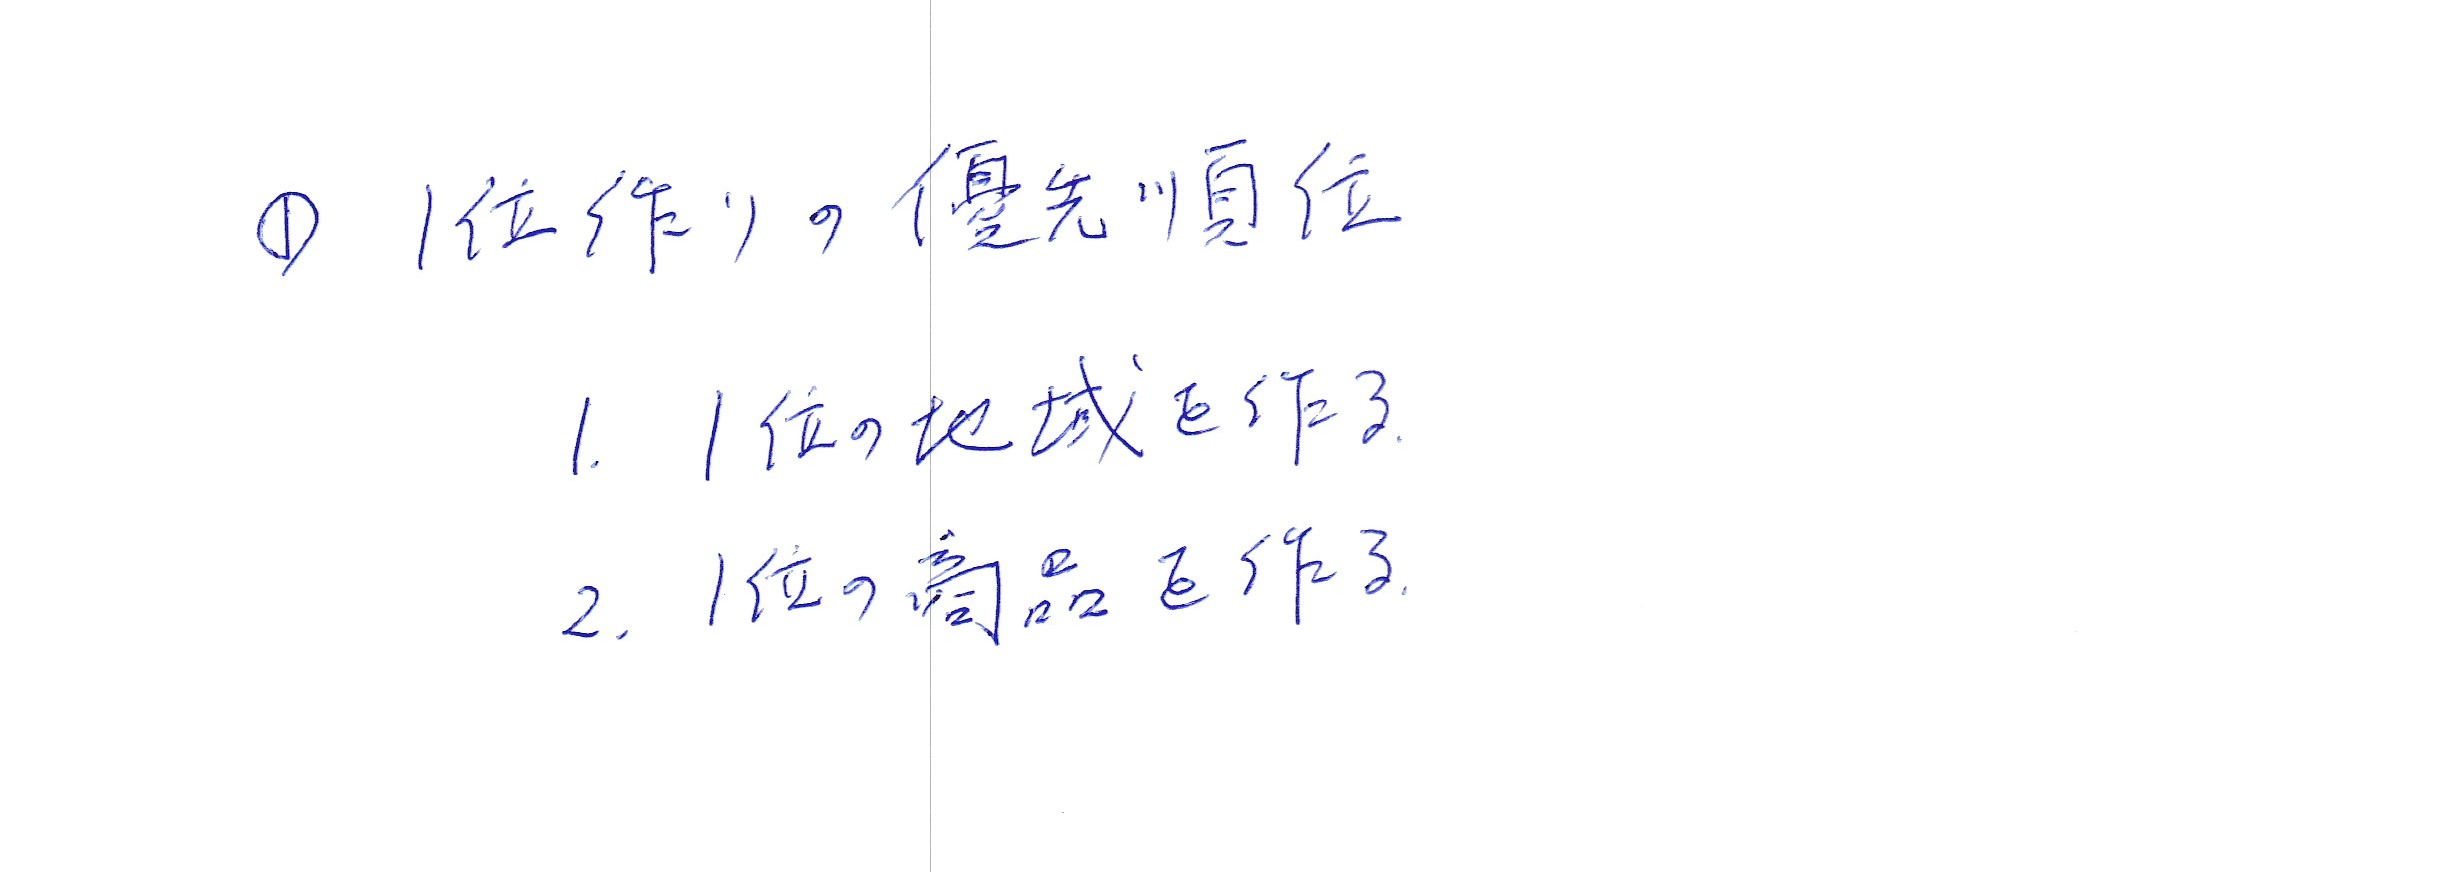 ① 1位作りの優先順位
1. 1位の地域を作る.
2. 1位の商品を作る.